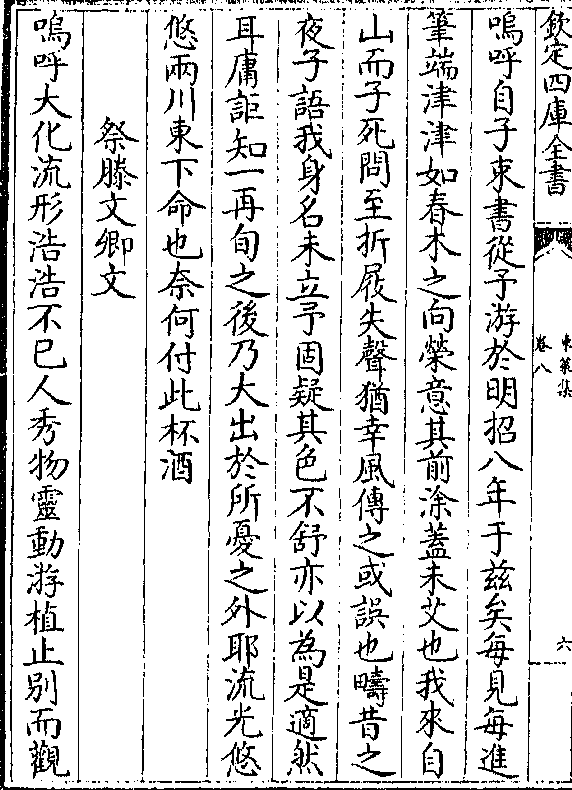 欽定四庫全書
東萊集
卷八
六
嗚呼自子束書從予游於明招八年于兹矣每見每進
筆端津津如春木之向榮意其前涂蓋未艾也我來自
山而子死問至折屐失聲猶幸風傳之或誤也疇昔之
夜子語我身名未立予固疑其色不舒亦以為是適然
耳庸詎知一再旬之後乃大出於所憂之外耶流光悠
悠兩川東下命也奈何付此杯酒
祭滕文卿文
嗚呼大化流形浩浩不已人秀物靈動游植止别而觀